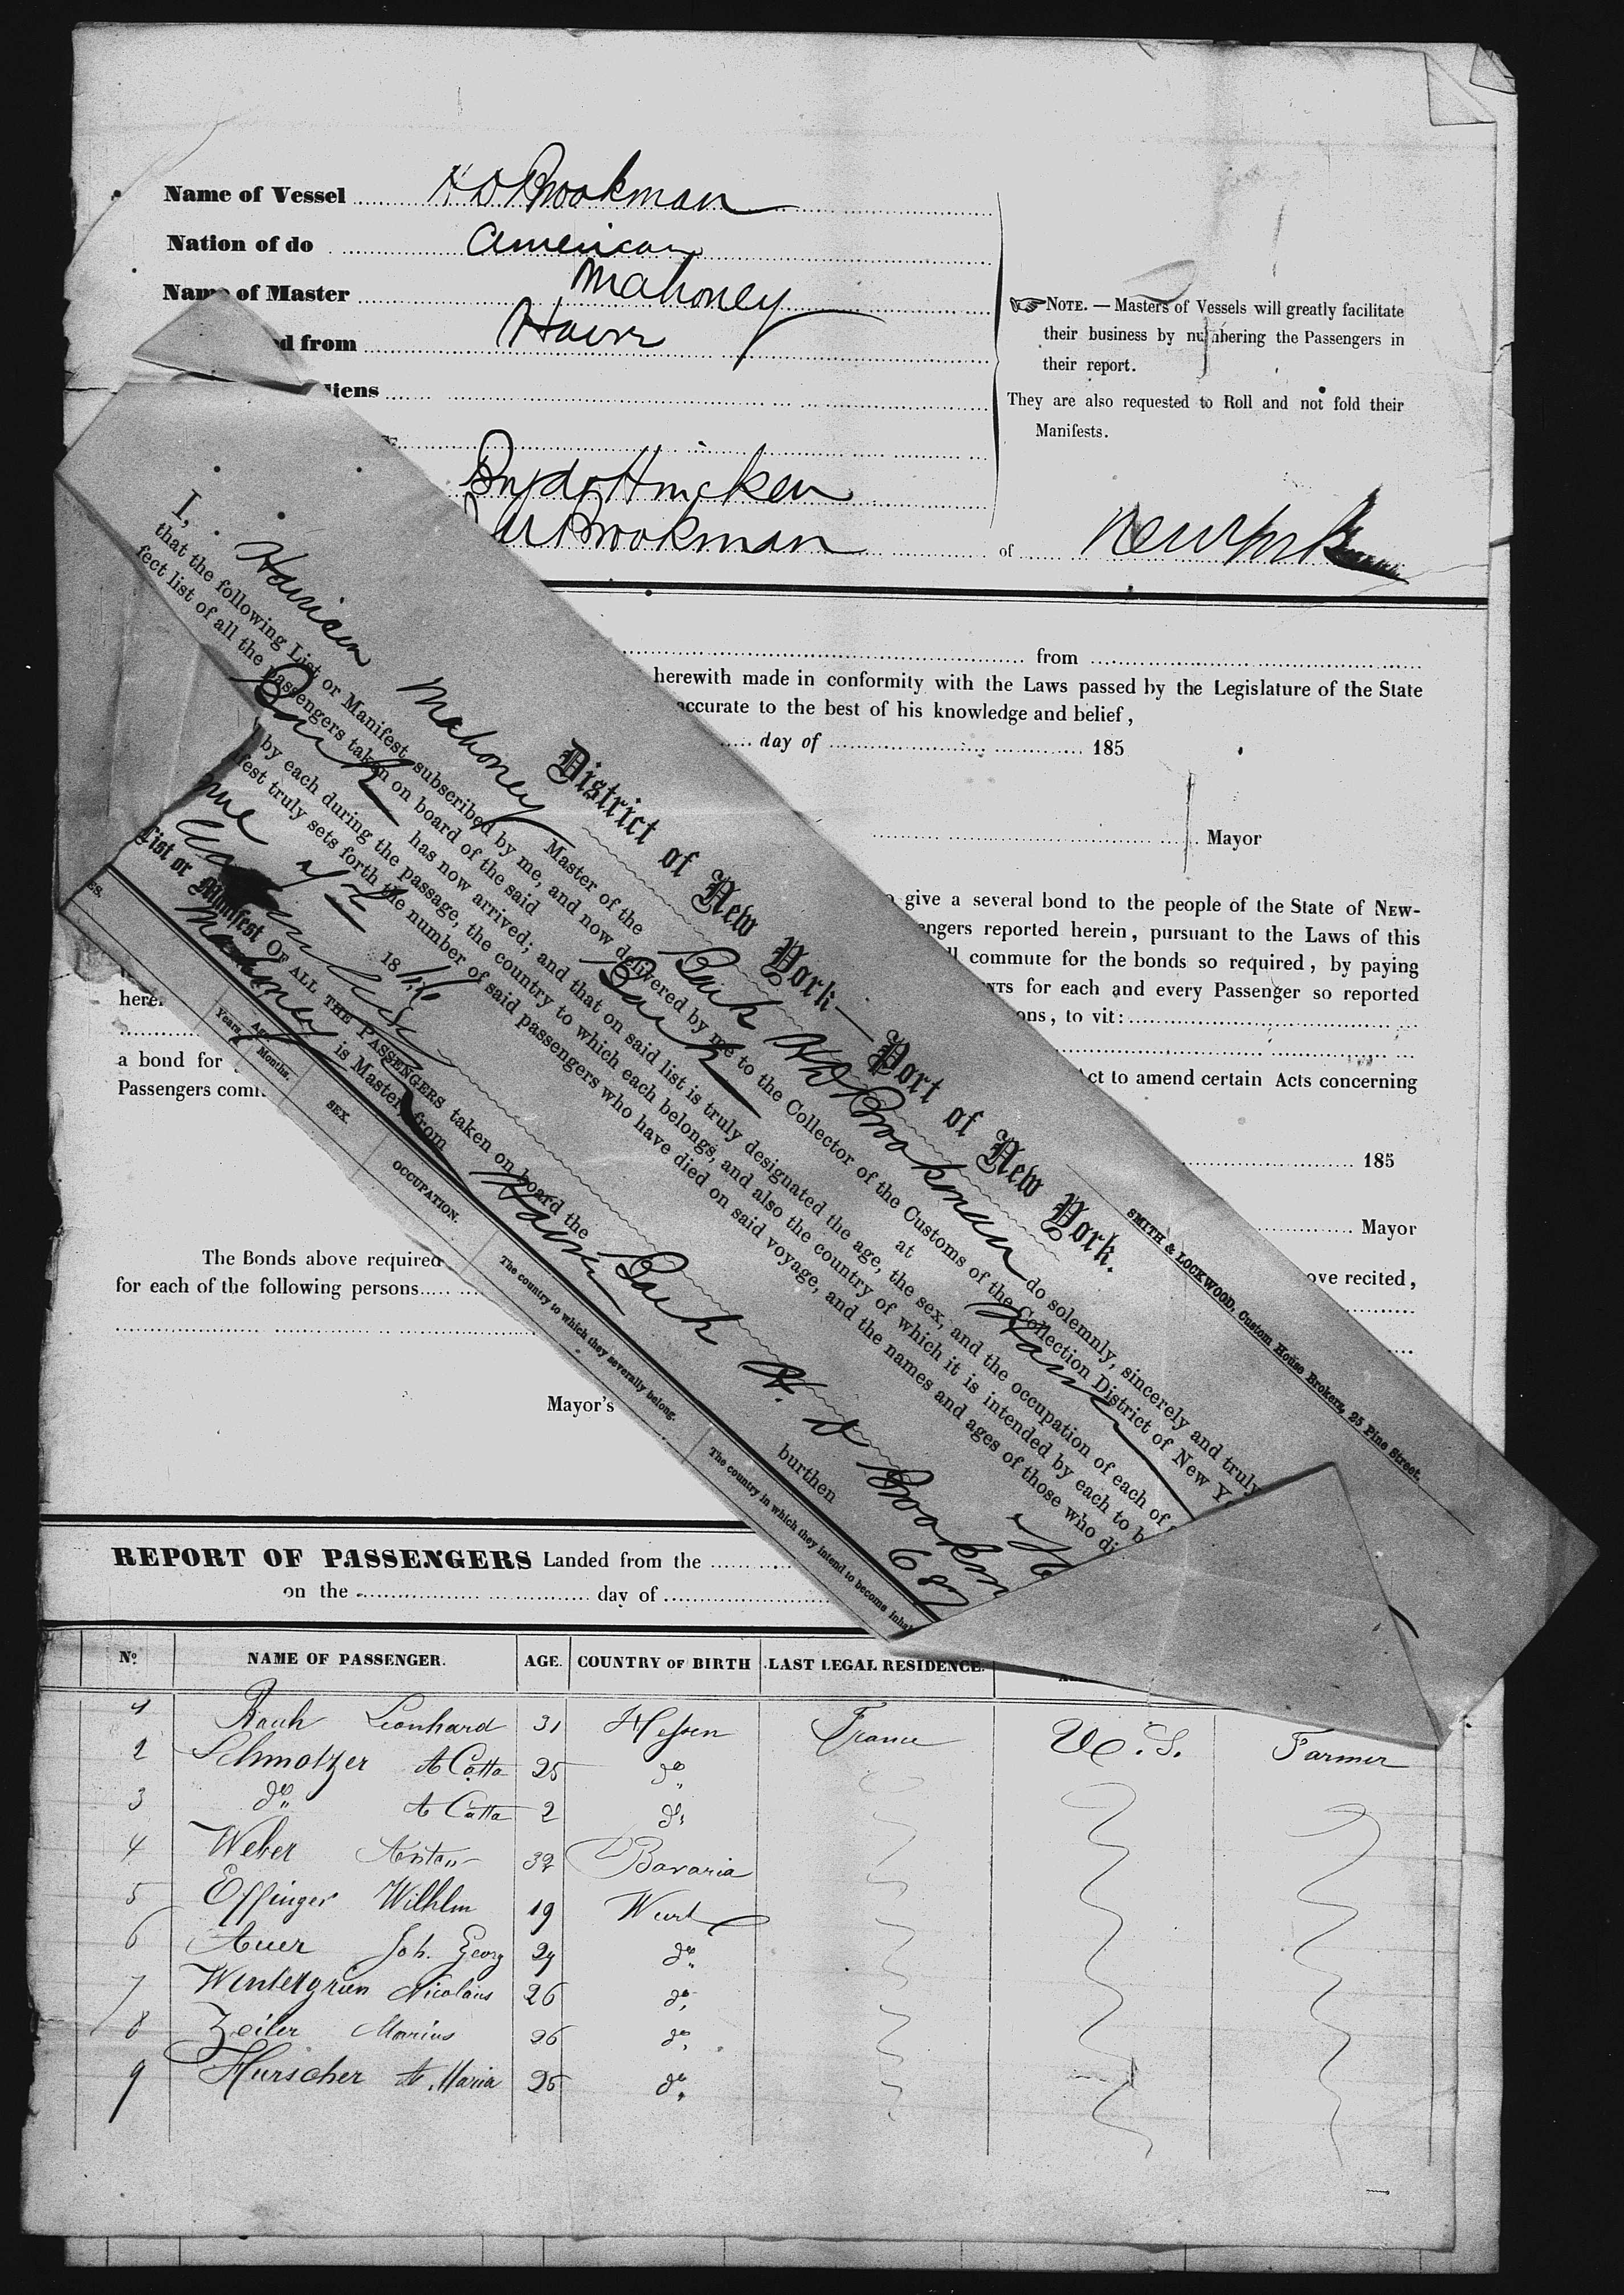 Name of Vessel H D Brookman
Nation of do American
Name of Master Mahoney
d from Havre
liens
Boyd & Hincken
Brookman of New York
NOTE. — Masters of Vessels will greatly facilitate
their business by numbering the Passengers in
their report.
They are also requested to Roll and not fold their
Manifests.
from
herewith made in conformity with the Laws passed by the Legislature of the State
accurate to the best of his knowledge and belief,
day of 185
Mayor
give a several bond to the people of the State of NEW-
engers reported herein, pursuant to the Laws of this
ll commute for the bonds so required, by paying
NTS for each and every Passenger so reported
here
ons, to vit:
a bond for
Act to amend certain Acts concerning
Passengers comm
185
Mayor
The Bonds above required
ove recited,
for each of the following persons
Mayor's
SMITH & LOCKWOOD, Custom House Brokers, 25 Pine Street.
District of New York—Port of New York.
I, Harrison Mahoney Master of the Bark H D Brookman do solemnly, sincerely and truly
that the following List or Manifest, subscribed by me, and now delivered by me to the Collector of the Customs of the Collection District of New Y
fect list of all the passengers taken on board of the said Bark at Havre
Bark has now arrived; and that on said list is truly designated the age, the sex, and the occupation of each of
by each during the passage, the country to which each belongs, and also the country of which it is intended by each to b
fest truly sets forth the number of said passengers who have died on said voyage, and the names and ages of those who di
18
List or Manifest OF ALL THE PASSENGERS taken on board the Bark H. D Brookm
Mahoney is Master, from Havre burthen 687
ES.
Age.
Years. Months.
SEX.
OCCUPATION.
The country to which they severally belong.
The country in which they intend to become inhab
REPORT OF PASSENGERS Landed from the
on the day of
No NAME OF PASSENGER. AGE. COUNTRY OF BIRTH LAST LEGAL RESIDENCE.
1 Rauh Leonhard 31 Hessen France U. S. Farmer
2 Schmolzer A Catta 25 do
3 do A Catta 2 do
4 Weber Anton 32 Bavaria
5 Effinger Wilhlm 19 Wurt
6 Auer Joh. Georg 24 do
7 Wintergrün Nicolaus 26 do
8 Zeiler Marius 26 do
9 Hurscher A. Maria 25 do